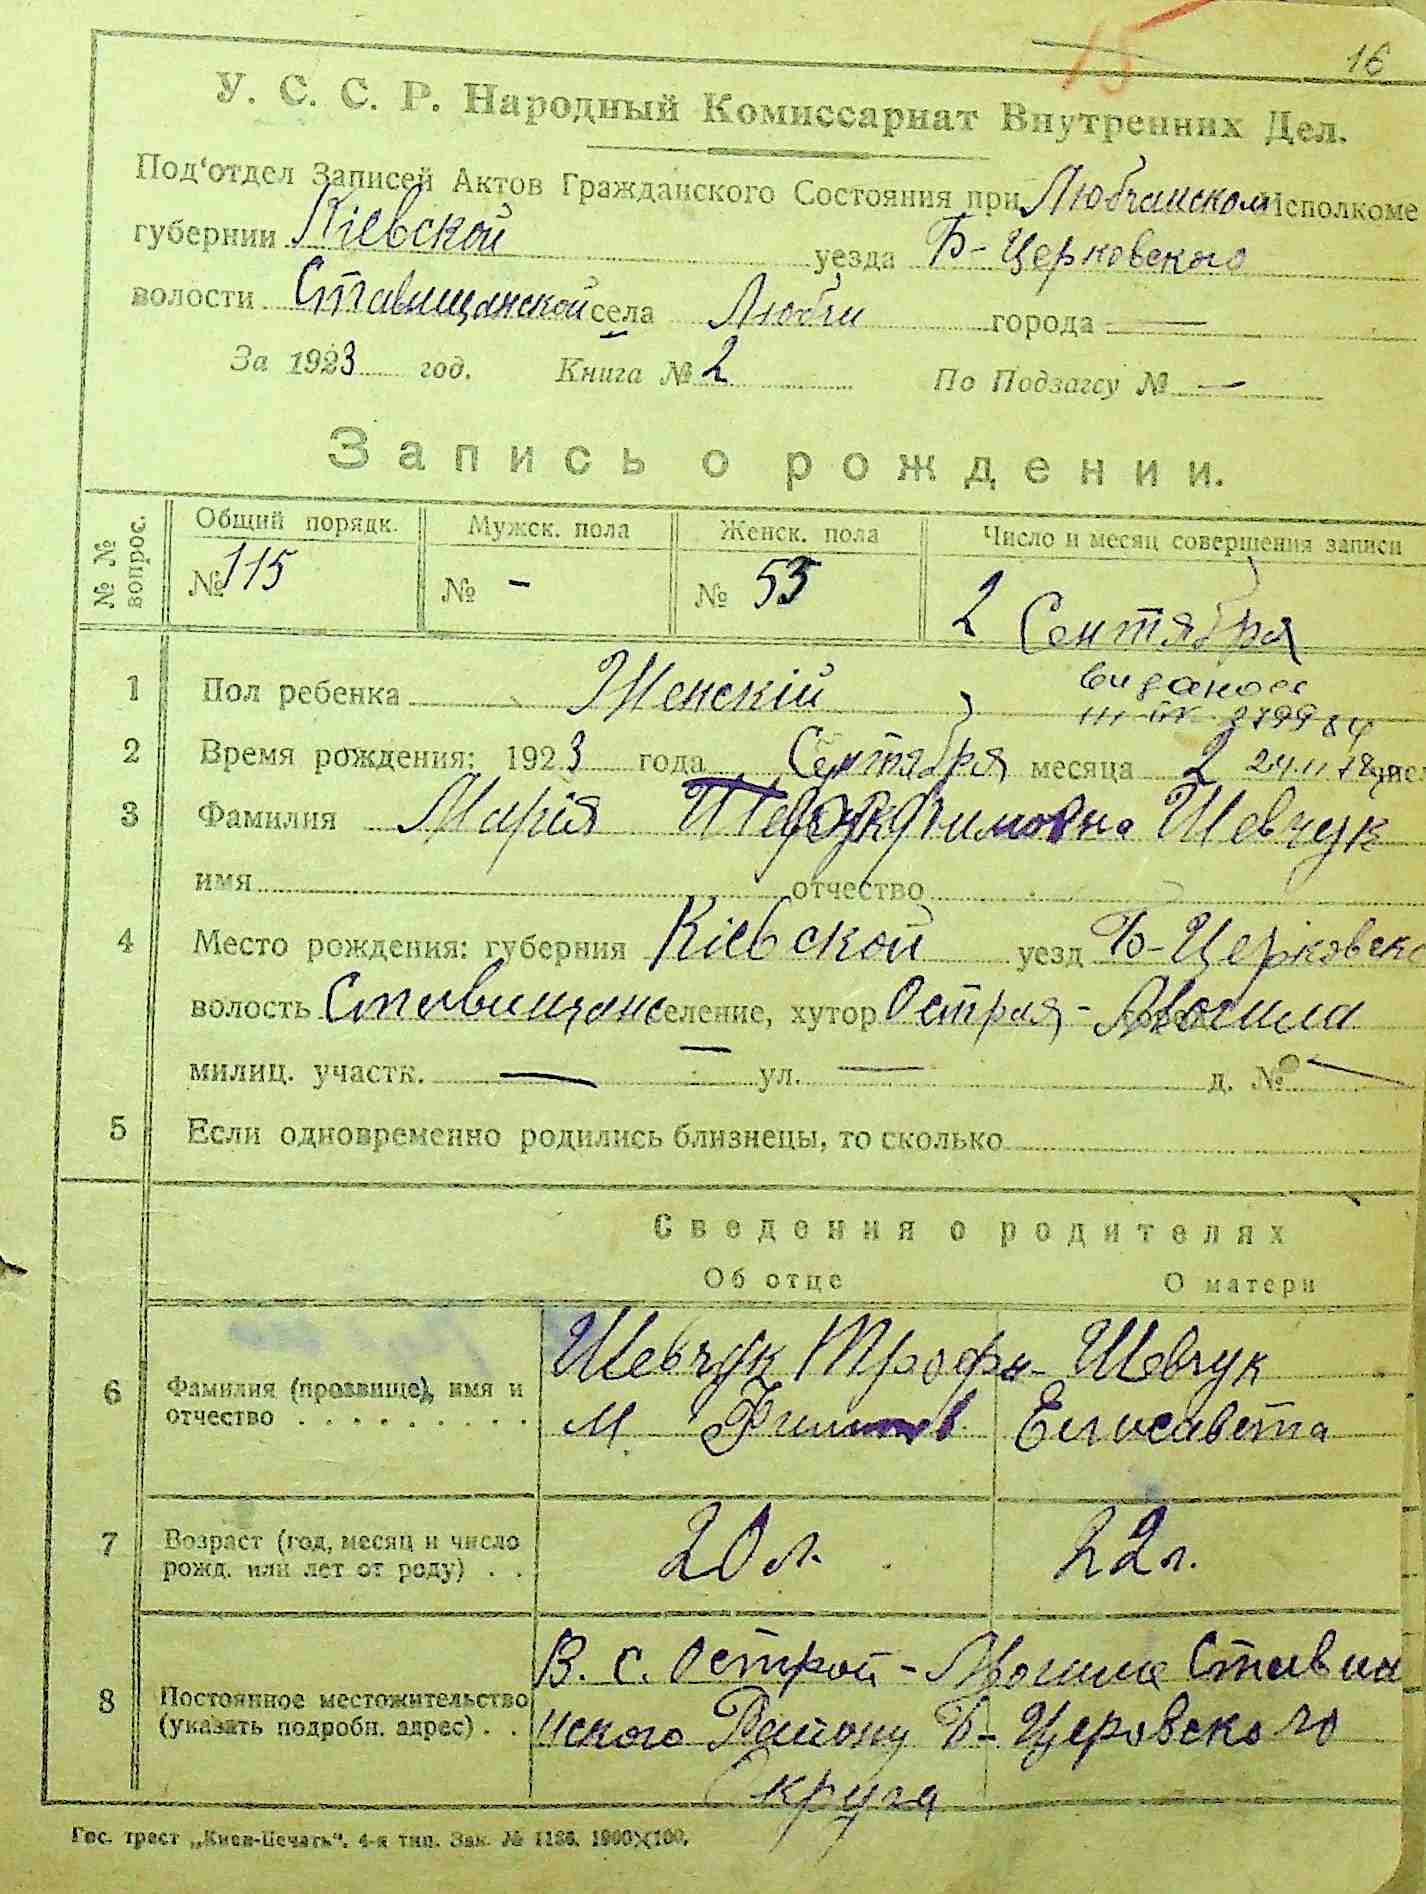 15
16
У. С. С. Р. Народный Комиссариат Внутренних Дел.
Под'отдел Записей Актов Гражданского Состояния при Любчанском Исполкоме
губернии Кіевской уезда Б-Церковского
волости Ставищанской села Любчи города —
За 1923 год. Книга № 2 По Подзагсу № —
Запись о рождении.
№ № вопрос. Общий порядк. Мужск. пола Женск. пола Число и месяц совершения записи
№ 115 № - № 53 2 Сентября
1 Пол ребенка Женскій
2 Время рождения: 1923 года Сентября месяца 2
3 Фамилия Марія Шевчук
имя отчество
4 Место рождения: губерния Кіевской уезд Б-Церковско
волость Ставищанс еление, хутор Острая-Могила
милиц. участк. — ул. — д. № —
5 Если одновременно родились близнецы, то сколько
Сведения о родителях
Об отце О матери
6 Фамилия (прозвище), имя и отчество Шевчук Трофи- Шевчук
м Елисавета
7 Возраст (год, месяц и число рожд. или лет от роду) 20 л. 22 л.
8 Постоянное местожительство (указать подробн. адрес) В. с. Острой-Могиле Ставищ
нского Району Б-Церовского
Округа
Гос. трест „Киев-Печать“. 4-я тип. Зак. № 1186. 1900X100.